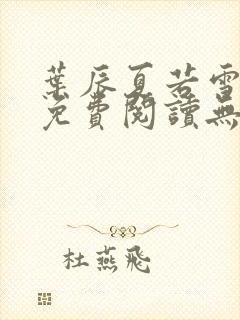 葉辰夏若雪
免費閱讀無
杜燕飛